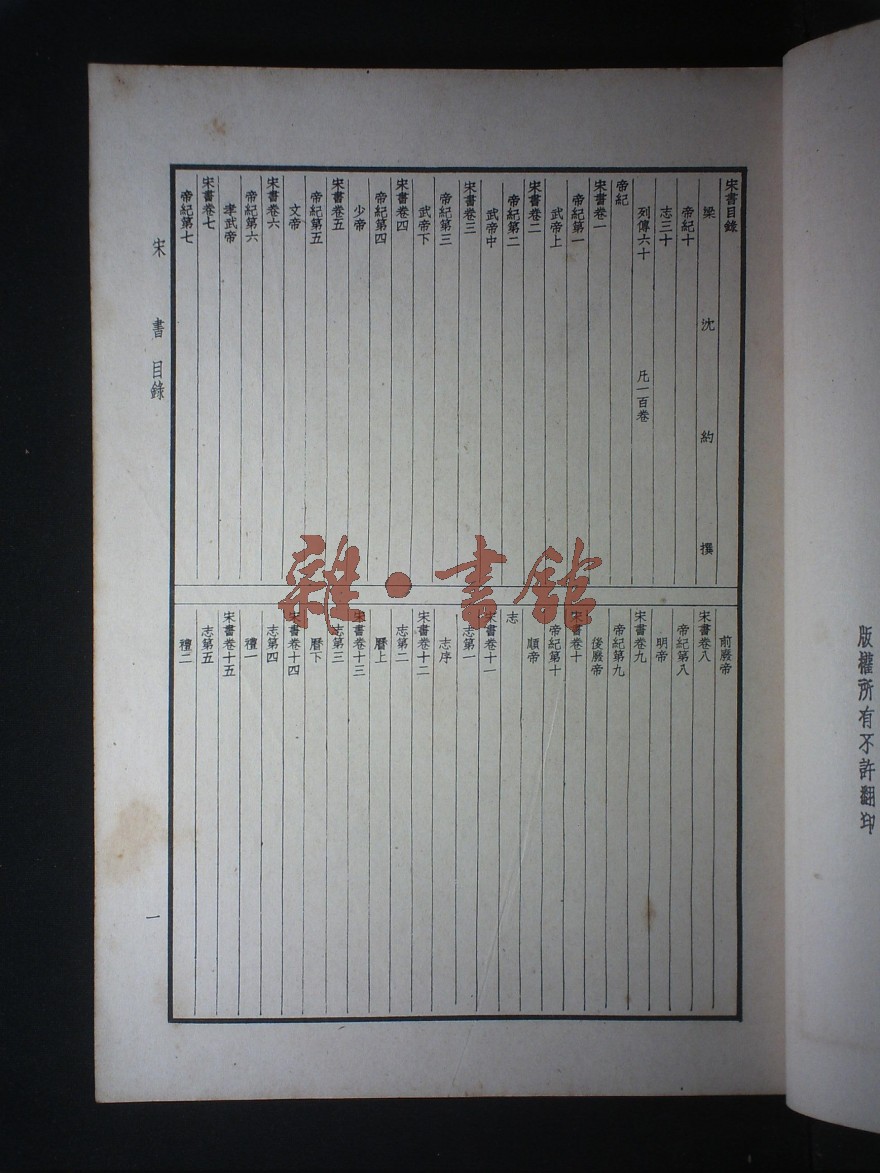 宋書目錄
梁 沈 約 撰
帝紀十
志三十
列傳六十 凡一百卷
帝紀
宋書卷一
帝紀第一
武帝上
宋書卷二
帝紀第二
武帝中
宋書卷三
帝紀第三
武帝下
宋書卷四
帝紀第四
少帝
宋書卷五
帝紀第五
文帝
宋書卷六
帝紀第六
孝武帝
宋書卷七
帝紀第七
前廢帝
宋書卷八
帝紀第八
明帝
宋書卷九
帝紀第九
後廢帝
宋書卷十
帝紀第十
順帝
志
宋書卷十一
志第一
志序
宋書卷十二
志第二
曆上
宋書卷十三
志第三
曆下
宋書卷十四
志第四
禮一
宋書卷十五
志第五
禮二
宋書 目錄
一
版權所有不許翻印
雜·書館